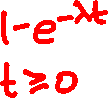 1-e^{-λt}
t≥0